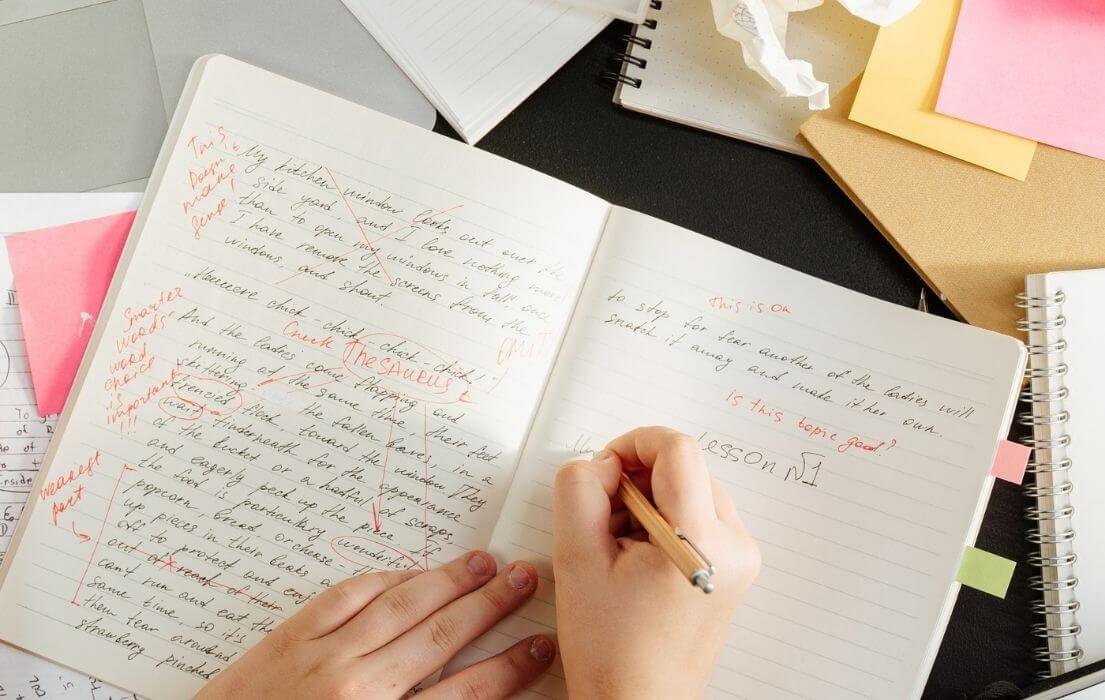 This
Doesn
make
sense!
My kitchen window looks out over the
side yard, and I love nothing more
than to open my windows in fall and
I have remove the screens from the
windows and shout.
chick-chick-chick-chick!
OMIT
Check
Thesaurus
Smarter
words
word
choice
is
important
!!!
And the ladies come flapping and
running at the same time, their feet
skittering the fallen leaves, in a
frenzied flock, toward the window. They
wait underneath for the appearance
of the bucket or a handful of scraps,
and eagerly peck up the piece. If
the food is particulary wonderful
popcorn, bread, or cheese
up pieces in their beaks
off to protect and
out of reach of their
can't run and eat the
same time, so it's
them tear around
strawberry pinched
weakest
part
This is Ok
to stop for fear another of the ladies will
snatch it away and make it her own.
is this topic good?
Lesson №1